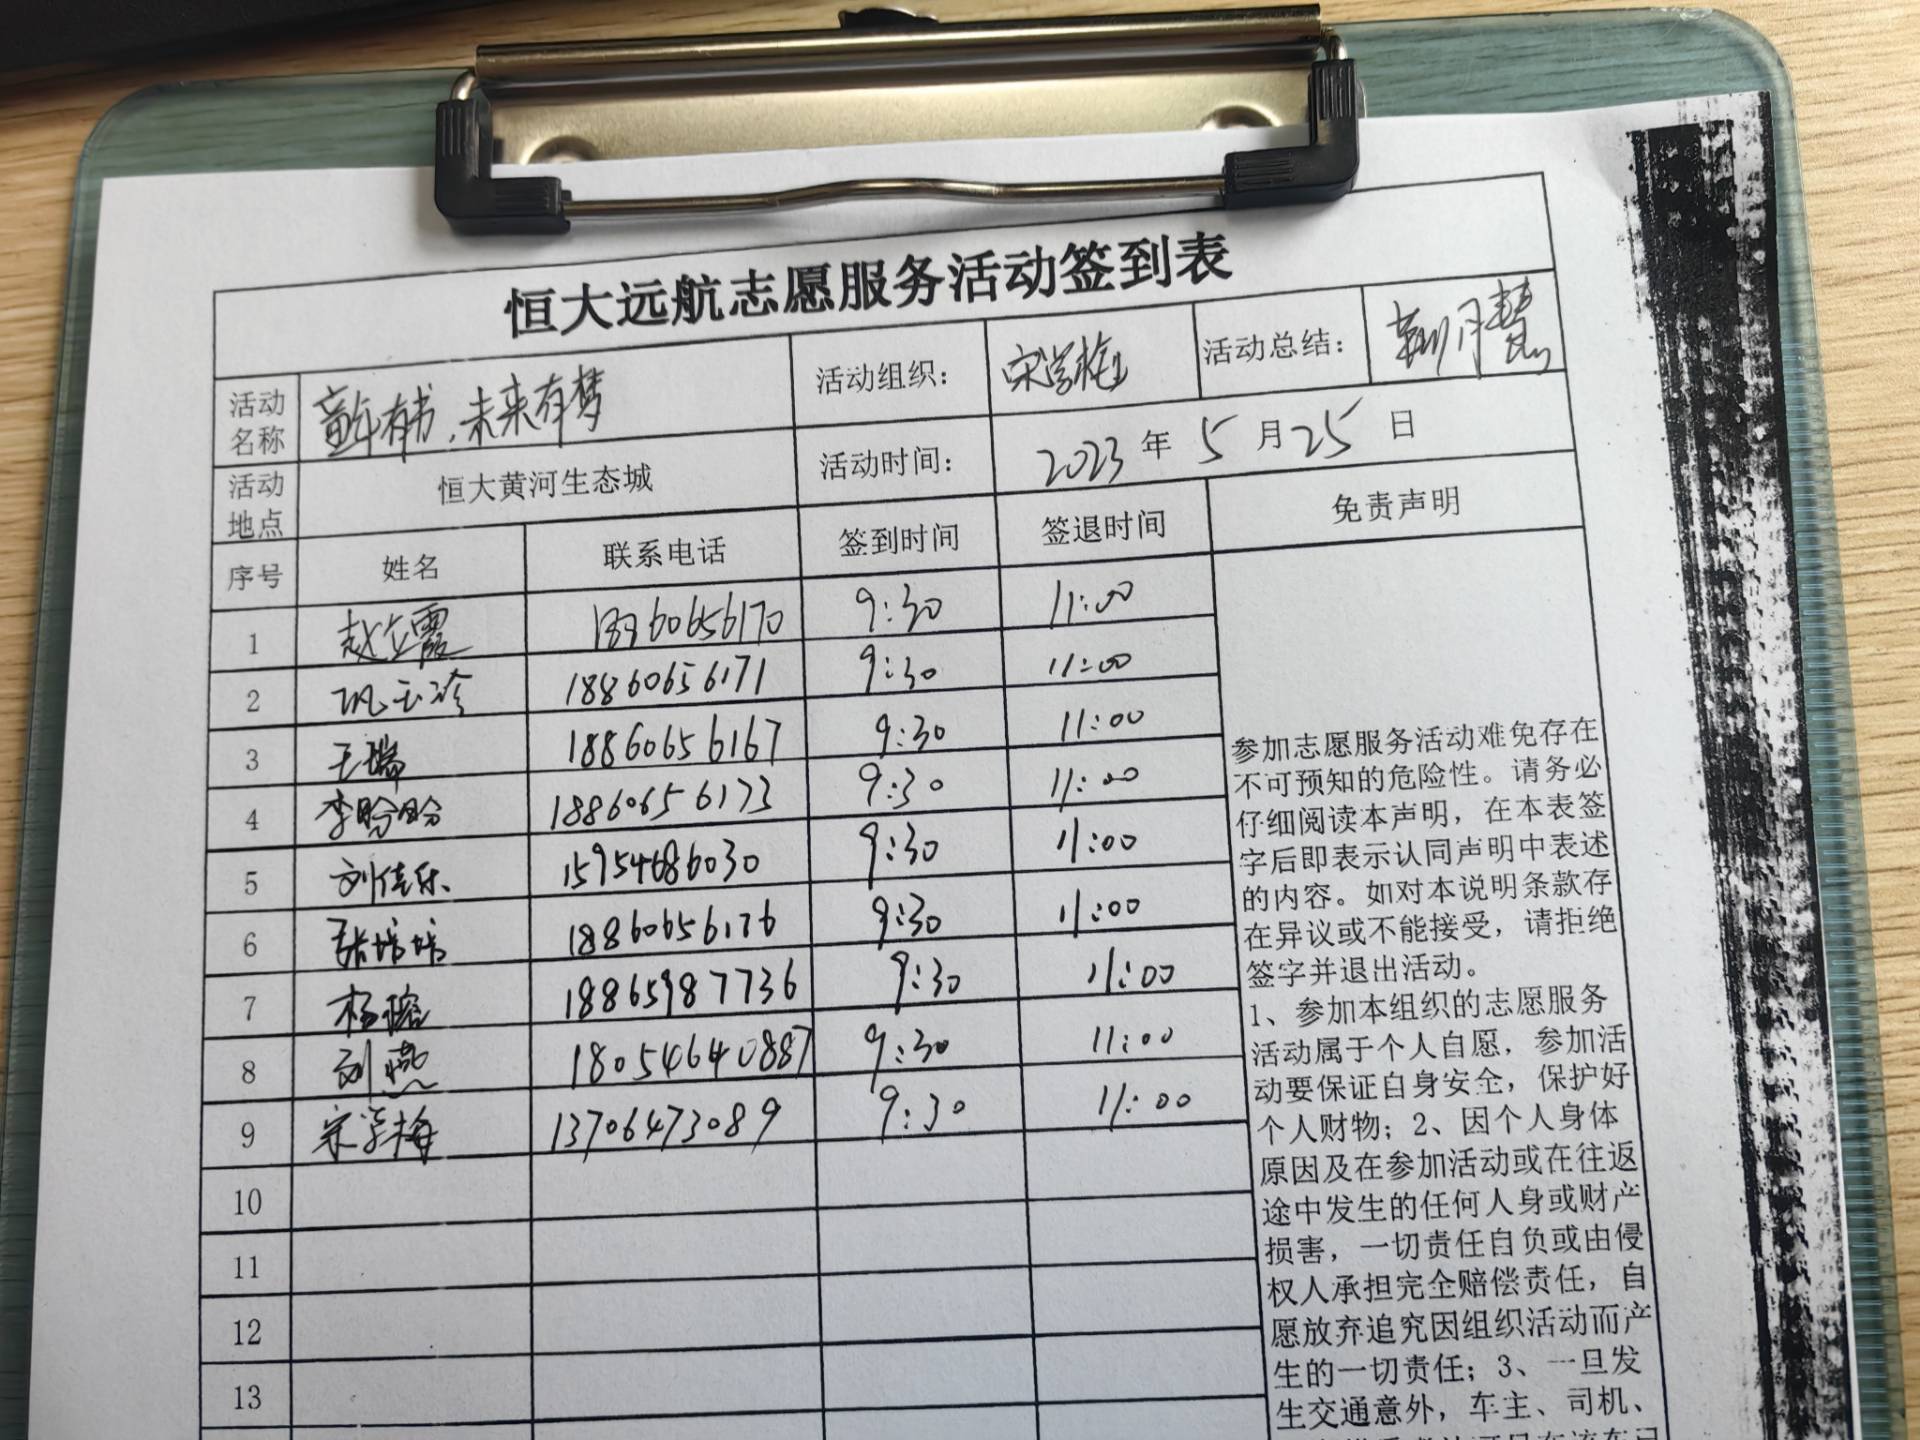 恒大远航志愿服务活动签到表
活动名称 童年有书,未来有梦 活动组织: 宋学梅 活动总结: 靳月慧
活动地点 恒大黄河生态城 活动时间: 2023 年 5 月 25 日
序号 姓名 联系电话 签到时间 签退时间 免责声明
1 赵立霞 18860656170 9:30 11:00
2 巩玉冷 18860656171 9:30 11:00
3 王瑞 18860656167 9:30 11:00
4 李盼盼 18860656173 9:30 11:00
5 刘佳乐 15954686030 9:30 11:00
6 张培培 18860656176 9:30 11:00
7 杨榕 18865987736 9:30 11:00
8 刘燕 18054640887 9:30 11:00
9 宋学梅 13706473089 9:30 11:00
10
11
12
13
参加志愿服务活动难免存在
不可预知的危险性。请务必
仔细阅读本声明,在本表签
字后即表示认同声明中表述
的内容。如对本说明条款存
在异议或不能接受,请拒绝
签字并退出活动。
1、参加本组织的志愿服务
活动属于个人自愿,参加活
动要保证自身安全,保护好
个人财物;2、因个人身体
原因及在参加活动或在往返
途中发生的任何人身或财产
损害,一切责任自负或由侵
权人承担完全赔偿责任,自
愿放弃追究因组织活动而产
生的一切责任;3、一旦发
生交通意外,车主、司机、